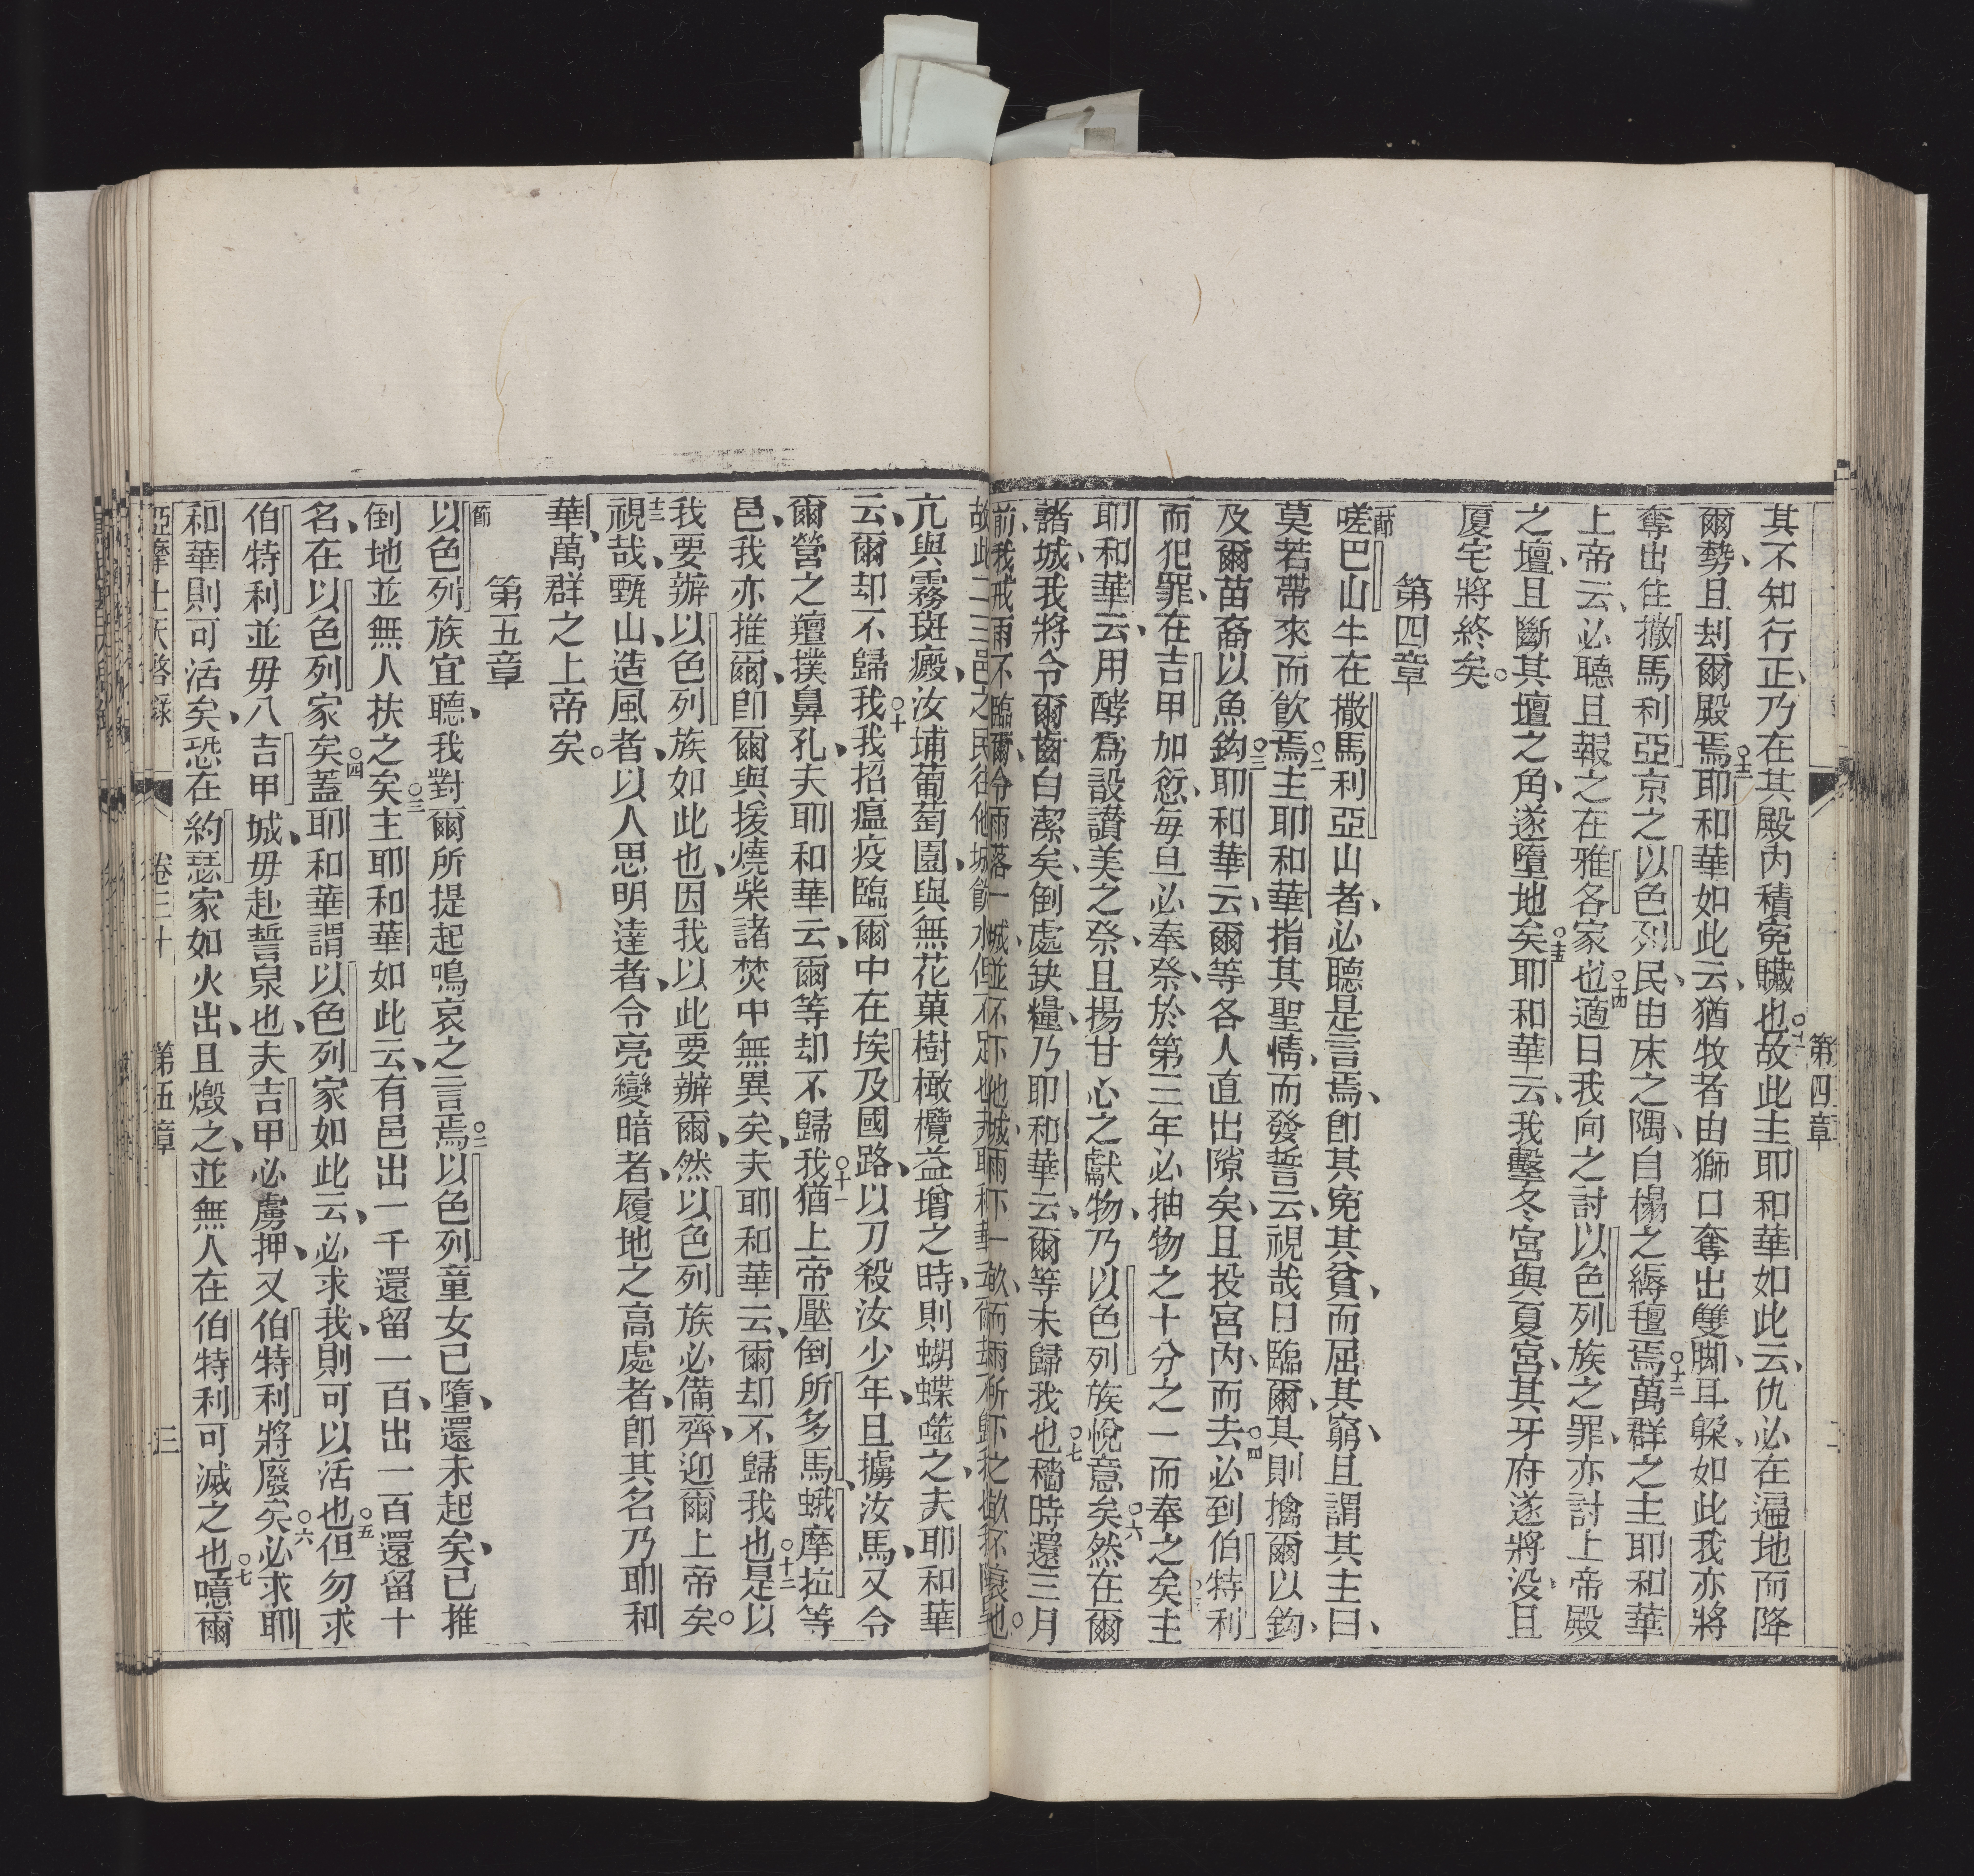 第四章
其不知行正、乃在其殿內積冤贜也。○十一故此主耶和華如此云、仇必在遍地而降
爾勢、且刦爾殿焉。○十二耶和華如此云、猶牧者由獅口奪出雙脚、耳躲、如此我亦將
奪出住撒馬利亞京之以色列民、由床之隅、自榻之縟氊焉。○十三萬群之主耶和華
上帝云、必聽且報之在雅各家也。○十四適日我向之討以色列族之罪、亦討上帝殿
之壇、且斷其壇之角、遂墮地矣。○十五耶和華云、我擊冬宮與夏宮、其牙府遂將沒、且
厦宅將終矣。
第四章
一節
嗟巴山牛在撒馬利亞山者、必聽是言焉、卽其冤其貧、而屈其窮、且謂其主曰、
莫若帶來而飲焉。○二主耶和華指其聖情、而發誓云、視哉日臨爾、其則擒爾以鈎、
及爾苗裔以魚鈎。○三耶和華云、爾等各人直出隙矣、且投宮內、而去。○四必到伯特利
而犯罪、在吉甲加愆、每旦必奉祭、於第三年必抽物之十分之一而奉之矣。主
耶和華云、用酵爲設讃美之祭、且揚甘心之獻物、乃以色列族悅意矣。○六然在爾
諸城、我將令爾齒白潔矣、倒處缺糧、乃耶和華云、爾等未歸我也。○七穡時還三月
前、我戒雨不臨爾、令雨落一城、並不下他城、雨下一畝、而雨不下之畝
故此二三邑之民往他城飲水、但不足也、夫耶和華云、爾却不歸我
亢與霧斑癜、汝埔葡萄園、與無花菓樹橄欖益增之時、則蝴蝶噬之、夫耶和華
云、爾却不歸我。○十我招瘟疫臨爾中、在埃及國路、以刀殺汝少年、且擄汝馬、又令
爾營之羶撲鼻孔、夫耶和華云、爾等却不歸我。○十一猶上帝壓倒所多馬、蛾摩拉等
邑、我亦推爾、卽爾與援燒柴諸焚中無異矣、夫耶和華云、爾却不歸我也。○十二是以
我要辦以色列族如此也、因我以此要辦爾、然以色列族必備齊、迎爾上帝矣。
十三
視哉、甄山、造風者、以人思明達者、令亮變暗者、履地之高處者、卽其名乃耶和
華、萬群之上帝矣。
第五章
一節
以色列族宜聽、我對爾所提起鳴哀之言焉。○二以色列童女已墮、還未起矣、已推
倒地並無人扶之矣。○三主耶和華如此云、有邑出一千還留一百、出一百還留十
名、在以色列家矣。○四蓋耶和華謂以色列家如此云、必求我、則可以活也。○五但勿求
伯特利、並毋入吉甲城、毋赴誓泉也、夫吉甲必虜押、又伯特利將廢矣。○六必求耶
和華則可活矣、恐在約瑟家如火出、且燬之、並無人在伯特利可滅之也。○七噫爾
亞摩士天啓錄 卷三十 第五章 三